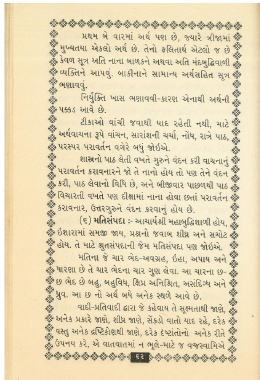 પ્રથમ બે વારમાં અર્થ પણ છે, જ્યારે ત્રીજામાં
મુખ્યતયા એકલો અર્થ છે. તેનો ફલિતાર્થ એટલો જ છે
કેવળ સુત્ર અતિ નાના બાળકને અથવા અતિ મંદબુદ્ધિવાળી
વ્યક્તિને આપવું. બાકીનાને સામાન્ય અર્થસહિત સુત્ર
ભણાવવું.
નિર્યુક્તિ ખાસ ભણાવવી-કારણ એનાથી અર્થની
પક્કડ આવે છે.
ટીકાઓ વાંચી જવાથી યાદ રહેતી નથી, માટે
અર્થવાચના રૂપે વાંચન, સારાંશની ચર્ચા, નોંધ, રાત્રે પાઠ,
પરસ્પર પરાવર્તન વગેરે બધુ જોઈએ.
શાસ્ત્રનો પાઠ લેતી વખતે ગુરુને વંદન કરી વાચનાનું
પરાવર્તન કરાવનારને જો તે નાનો હોય તો પણ તેને વંદન
કરી, પાઠ લેવાનો વિધિ છે, અને બીજીવાર પાછળથી પાઠ
વિચારતી વખતે પણ દીક્ષામાં નાના હોવા છતાં પરાવર્તન
કરાવનાર, ઉત્તરગુરુને વંદન કરવાનું હોય છે.
(૬) મતિસંપદા :- આચાર્યશ્રી મહાબુદ્ધિશાળી હોય.
ઈશારામાં સમજી જાય. પ્રશ્નનો જવાબ શીઘ્ર અને સચોટ
હોય. તે માટે શ્રુતસંપદાની જેમ મતિસંપદા પણ જોઈએ.
મતિના જે ચાર ભેદ-અવગ્રહ, ઉહા, અપાય અને
ધારણા છે તે ચાર ભેદના ચાર ગુણ લેવા. આ ચારના છ-
છ ભેદ છે બહુ, બહુવિધ, ક્ષિપ્ર અનિશ્રિત, અસંદિગ્ધ અને
ધ્રુવ. આ છ નો અર્થ બધે અનેક સ્થળે આવે છે.
વાદી-પ્રતિવાદી દ્વારા જે કહેવાય તે સુક્ષ્મતાથી જાણે,
અનેક પ્રકારે જાણે, શીઘ્ર જાણે, સેંકડો વાતો યાદ રહે, દરેક
વસ્તુ અનેક દ્રષ્ટિકોણથી જાણે, દરેક દૃષ્ટાંતોનો અનેક રીતે
ઉપનય કરે, એ વાતવાતમાં ન ભુલે-માટે જ વજ્રસ્વામિએ
૬૨